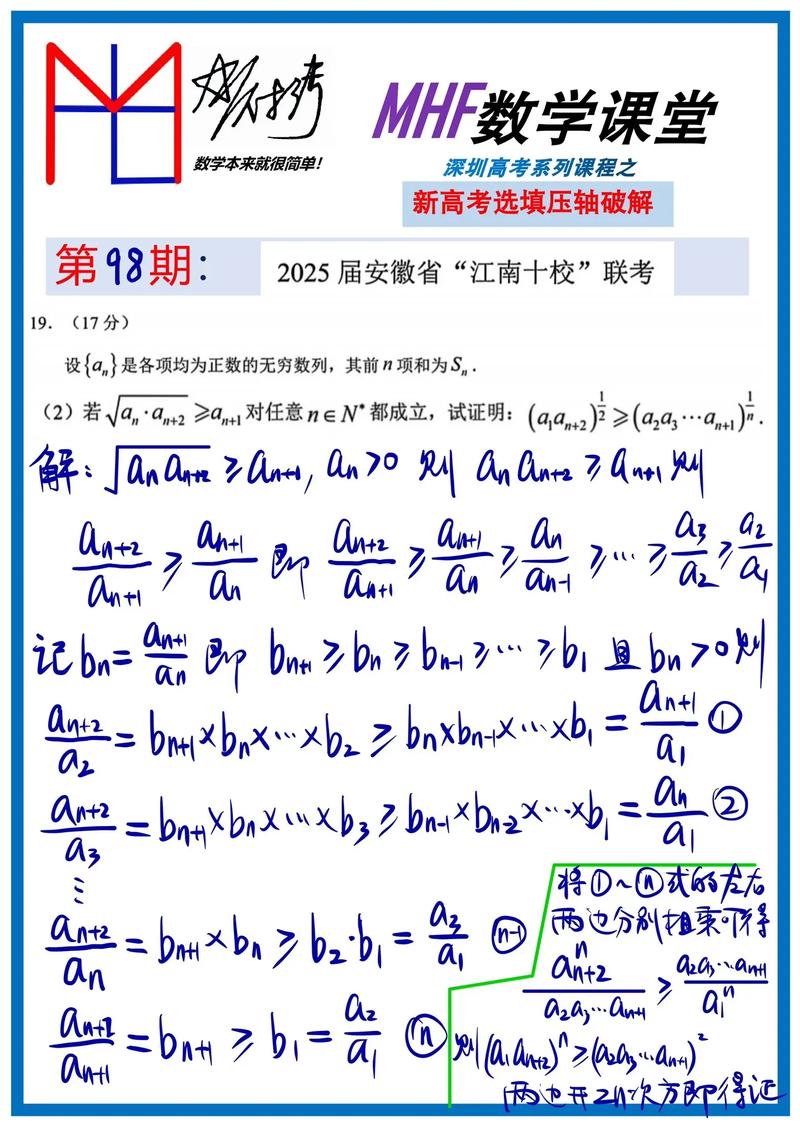 数学本来就很简单!
MHF数学课堂
深圳高考系列课程之
新高考选填压轴破解
第98期:
2025届安徽省“江南十校”联考
19. (17分)
设{aₙ}是各项均为正数的无穷数列,其前n项和为Sₙ.
(2)若√(aₙ·aₙ₊₂) ≥aₙ₊₁对任意n∈N*都成立,试证明:(a₁aₙ₊₂)^(1/2) ≥(a₂a₃⋯aₙ₊₁)^(1/n).
解:√(aₙaₙ₊₂) ≥ aₙ₊₁, aₙ>0 则 aₙaₙ₊₂ ≥ aₙ₊₁ 则
aₙ₊₂/aₙ₊₁ ≥ aₙ₊₁/aₙ 即 aₙ₊₂/aₙ₊₁ ≥ aₙ₊₁/aₙ ≥ aₙ/aₙ₋₁ ≥ ⋯ ≥ a₃/a₂ ≥ a₂/a₁
记bₙ= aₙ₊₁/aₙ 即 bₙ₊₁ ≥ bₙ ≥ bₙ₋₁ ≥ ⋯ ≥ b₁ 且 bₙ>0 则
aₙ₊₂/a₂ = bₙ₊₁×bₙ×⋯×b₂ ≥ bₙ×bₙ₋₁×⋯×b₁ = aₙ₊₁/a₁ ①
aₙ₊₂/a₃ = bₙ₊₁×bₙ×⋯×b₃ ≥ bₙ₋₁×bₙ₋₂×⋯×b₁ = aₙ/a₁ ②
⋮
aₙ₊₂/aₙ = bₙ₊₁×bₙ ≥ b₂·b₁ = a₃/a₁ (n-1)
aₙ₊₂/aₙ₊₁ = bₙ₊₁ ≥ b₁ = a₂/a₁ ⓝ
将①~ⓝ式的左右
两边分别相乘可得
aₙ₊₂ⁿ/(a₂a₃⋯aₙ₊₁) ≥ (a₂a₃⋯aₙ₊₁)/a₁ⁿ
则(a₁aₙ₊₂)ⁿ ≥ (a₂a₃⋯aₙ₊₁)²
两边开2n次方即得证